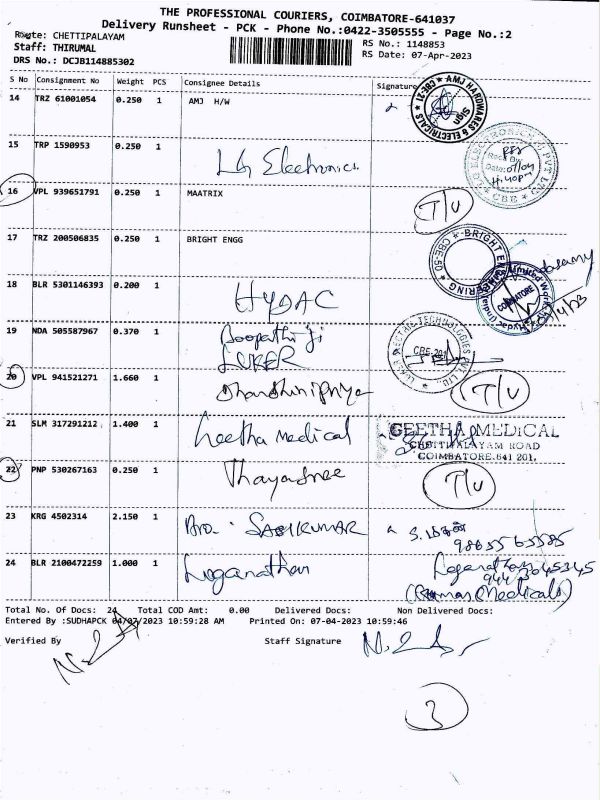 THE PROFESSIONAL COURIERS, COIMBATORE-641037
Delivery Runsheet - PCK - Phone No.:0422-3505555 - Page No.:2
Route: CHETTIPALAYAM
Staff: THIRUMAL
DRS No.: DCJB114885302
RS No.: 1148853
RS Date: 07-Apr-2023
S No Consignment No Weight PCS Consignee Details Signature
14 TRZ 61001054 0.250 1 AMJ H/W
AMJ HARDWARES & ELECTRICALS ★ CBE-21 ★
Sign
15 TRP 1590953 0.250 1 LG Electronics
CBE
16 VPL 939651791 0.250 1 MAATRIX T/U
17 TRZ 200506835 0.250 1 BRIGHT ENGG
BRIGHT ENGINEERING ★ CBE-50 ★
18 BLR 5301146393 0.200 1 HYDAC
COIMBATORE
19 NDA 505587967 0.370 1 Boopathi ji
LUKER
20 VPL 941521271 1.660 1 Dharshinipriya T/U
21 SLM 317291212 1.400 1 Geetha Medical
GEETHA MEDICAL
CHETTIPALAYAM ROAD
COIMBATORE.641 201.
22 PNP 530267163 0.250 1 Thayashree T/U
23 KRG 4502314 2.150 1 SASIKUMAR
24 BLR 2100472259 1.000 1 Loganathan Loganathan
Medicals)
Total No. Of Docs: 24 Total COD Amt: 0.00 Delivered Docs: Non Delivered Docs:
Entered By :SUDHAPCK 04/07/2023 10:59:28 AM Printed On: 07-04-2023 10:59:46
Verified By Staff Signature
3